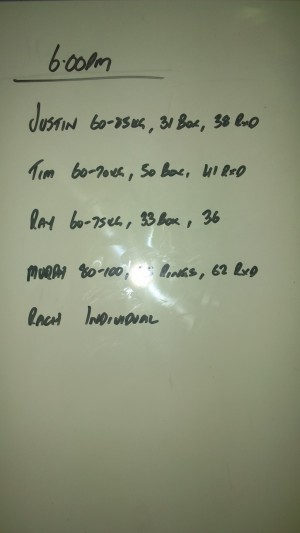 6:00PM
JUSTIN 60-85KG, 31 BOX, 38 RXD
TIM 60-70KG, 50 BOX, 41 RXD
RAY 60-75KG, 33 BOX, 36
MURRAY 80-100, RINGS, 62 RXD
RACH INDIVIDUAL